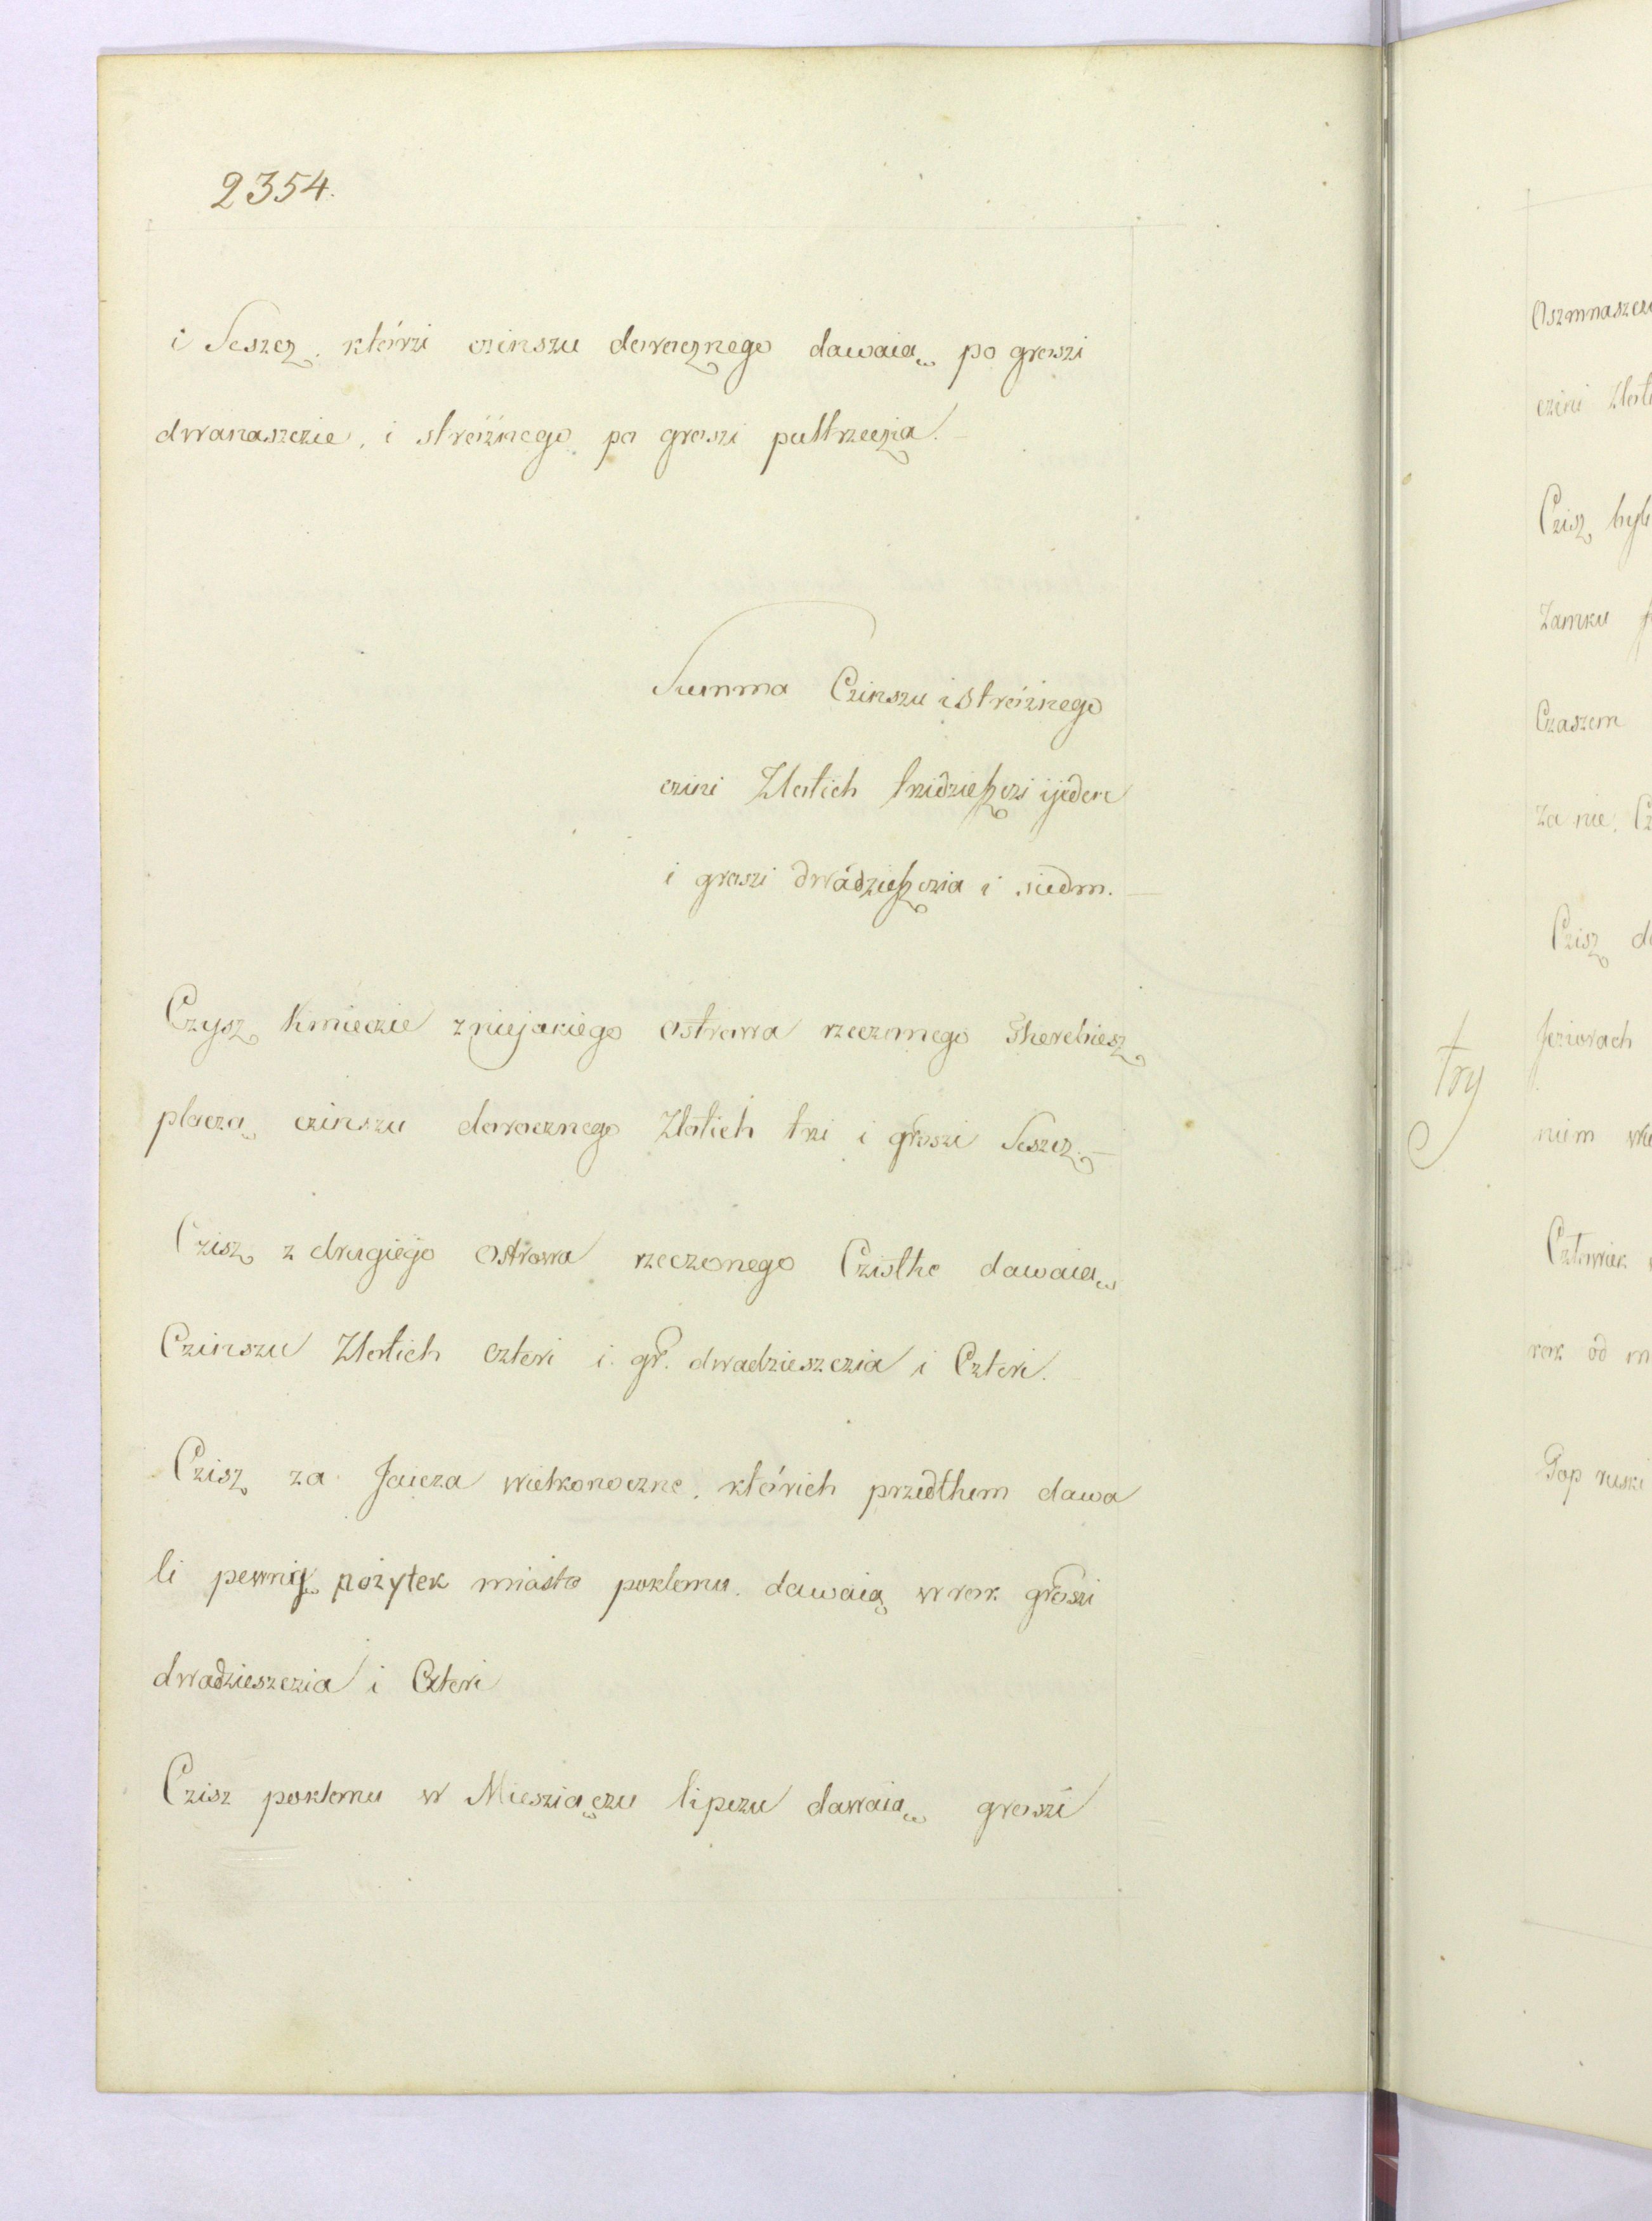 2354.
i Seszcz. którzi czinszu dorocznego dawaią po groszi
dwanaszczie, i stróżnego po groszi pułtrzeczia.
Summa Czinszu i stróżnego
czini Złotich trzidzieszczi i jeden
i groszi dwádzieszczia i siedm.
Czysz Kmieczie z niejakiego ostrowa rzeczonego Therebiesz
płaczą czinszu dorocznego Złotich trzi i groszi Seszcz.
Czisz z drugiego ostrowa rzeczonego Czisthe dawaią
Czinszu Złotich czteri i. gr. dwadzieszczia i Czteri.
Czisz za Jaicza wielkonoczne. którich przedthem dawa
li pewnij pożytek miasto pokłonu. dawaią w rok groszi
dwadzieszczia i Czteri
Czisz pokłonu w Miesziączu lipczu dawaią groszi
Oszmnaszczi
czini Złoti
Czisz był
Zamku
Czaszem
Za nie. Cz
Czisz d
try
Jeziorach
nim
Człowiek
rok od m
Pop ruski